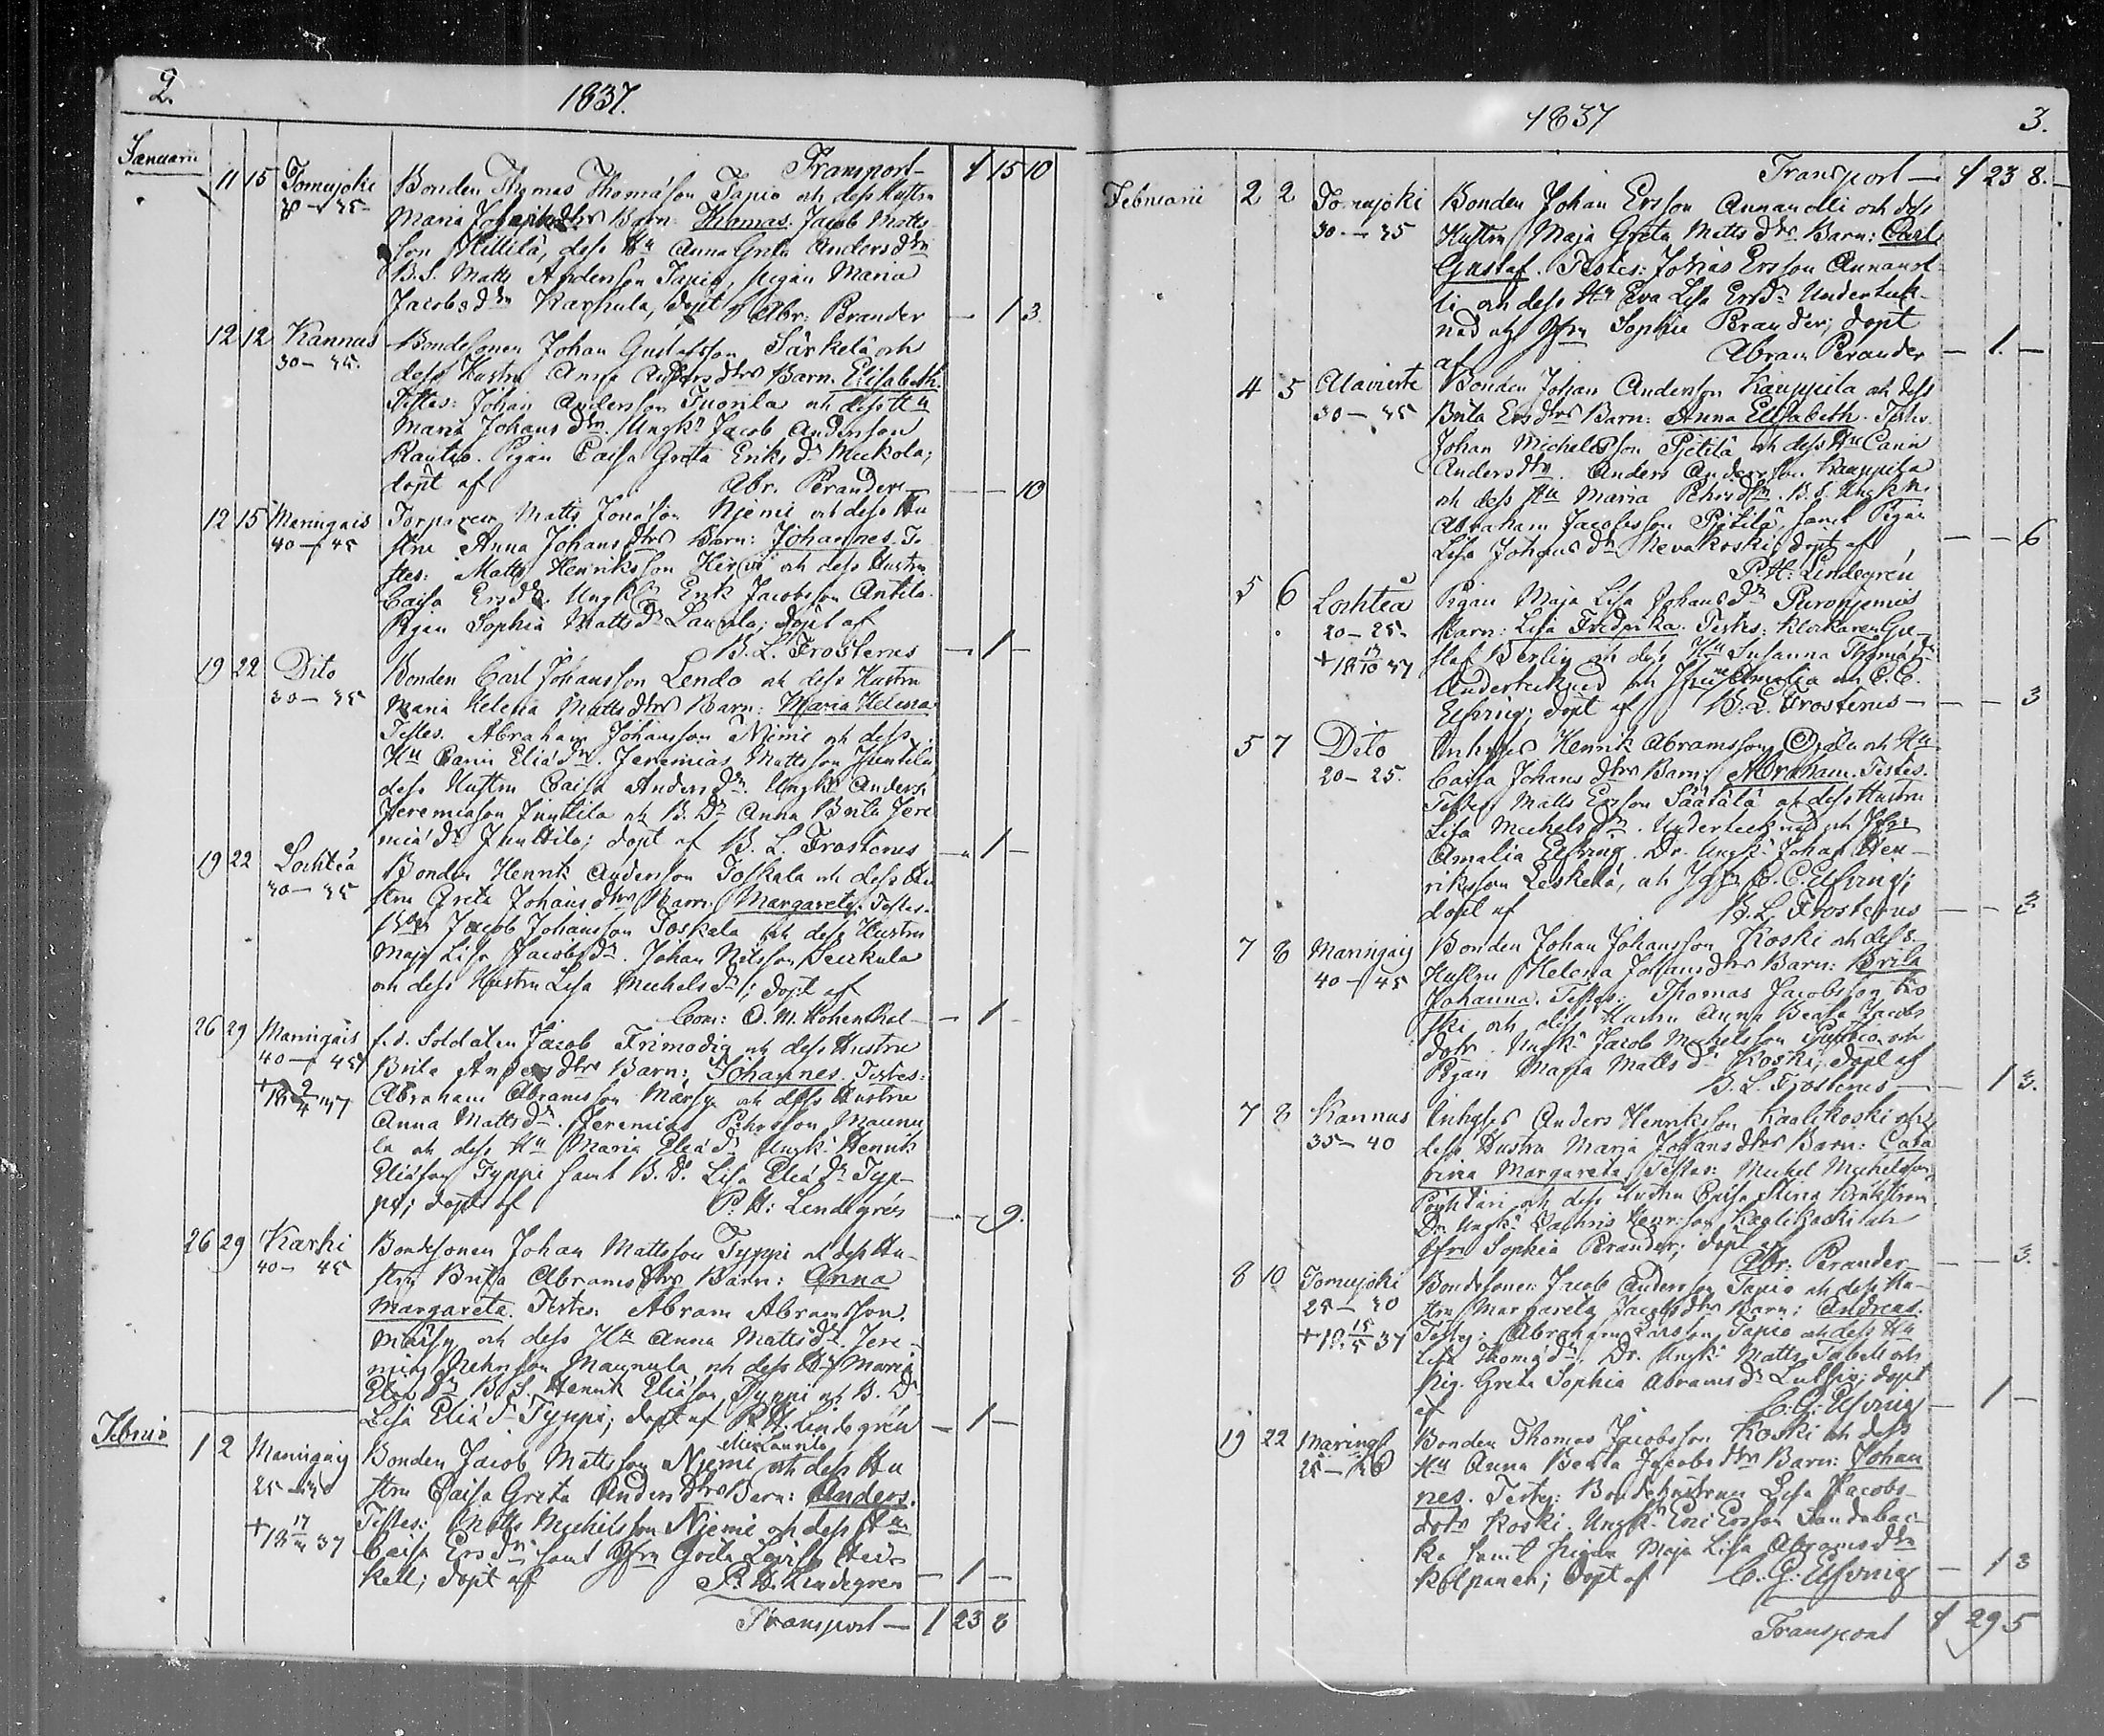 2.
1837.
Januarii
Transport — 1 15 10
11 15 Tomujoki Bonden Thomas Thomasson Tapio och dess Hustru
30 — 35 Maria Johansdtrs Barn: Thomas. Jacob Matts
son Hillilä, dess Hu Anna Greta Andersdtr
B.S. Matts Andersson Tapio, pigan Maria
Jacobsdtr Karhula, döpt af Abr: Perander — 1 3.
12 12 Kannus Bondesonen Johan Gustafsson Särkelä och
30 — 35. dess Hustru Anna Andersdtrs Barn. Elisabeth.
Testes: Johan Andersson Tuorila och dess Hu
Maria Johansdtr. Ungk. Jacob Andersson
Rautio. Pigan Caisa Greta Eriksdr Mickola;
döpt af Abr. Perander — — 10
12 15 Maningais Torparen Matts Jonasson Njemi och dess Hu
40 — 45 stru Anna Johansdtrs Barn: Johannes. Te
stes: Matts Henriksson Hirvi och dess Hustru
Caisa Ersdr. Ungk. Erik Jacobsson Antila.
Pigan Sophia Mattsdr Laurila; döpt af
B. L. Frosterus — 1 —
19 22 Dito Bonden Carl Johansson Lendo och dess Hustru
30 — 35 Maria Helena Mattsdtrs Barn: Maria Helena
Testes. Abraham Johansson Niemi och dess
Hu Carin Eliædr. Jeremias Mattsson Junttila
dess Hustru Caisa Andersdr. Ungk. Anders
Jeremiasson Junttila och B. Dr Anna Brita Jere
miædr Junttila; döpt af B. L. Frosterus — 1 —
19 22 Lochteå Bonden Henrik Andersson Toskala och dess Hu
30 — 35 stru Greta Johansdtrs Barn. Margareta. Testes.
Jacob Johansson Toskala och dess Hustru
Maja Lisa Jacobsdr. Johan Nilsson
och dess Hustru Lisa Michelsdr; döpt af
Com: O. M. Hohenthal — 1 —
26 29 Maningais f.d. Soldaten Jacob Frimodig och dess Hustru
40 — 45 Brita Andersdtrs Barn: Johannes. Testes:
+ 18 2/4 37 Abraham Abramsson Märsy och dess Hustru
Anna Mattsdr. Jeremias Pehrsson Maunu
la och dess Hu Maria Eliædr Ungk. Henrik
Eliæson Typpi samt B. Dr. Lisa Eliædr Typ-
pi; döpt af P. H: Lindegrén — — 9.
26 29 Karhi Bondesonen Johan Mattsson Typpi och dess Hu-
40 — 45 stru Brita Abramsdtrs Barn: Anna
Margareta. Testes: Abram Abramsson.
Märsy och dess Hu Anna Mattsdr. Jere-
mias Pehrsson Maunula och dess Hu Maria
Eliædr B. S. Henrik Eliæson Typpi och B. Dr
Lisa Eliædr Typpi; döpt af P. H. Lindegrén — 1 —
Februarii
eller Laurila
1 2 Maningaig Bonden Jacob Mattsson Njemi och dess Hu
25 — 30 stru Caisa Greta Andersdtrs Barn: Anders.
+ 18 37 Testes: Matts Michelsson Njemi och dess Hu
Caisa Ersdr. samt Jfru Greta Lovisa Hei-
kell; döpt af P. H. Lindegrén — 1 —
Transport — 1 23 8
1837
3.
Transport — 1 23 8.
Februarii 2 2 Tomujoki Bonden Johan Ersson Annanolli och dess
30 — 35 Hustru Maja Greta Mattsdtrs Barn: Carl
Gustaf. Testes: Johas Ersson Annanol-
li och dess Hu Eva Lisa Ersdr Underteck-
nad och Jfru Sophie Perander; döpt
af Abram Perander — 1. —
4 5 Alavierte Bonden Johan Andersson Kauppila och dess
30 — 35 Brita Ersdtrs Barn: Anna Elisabeth. Testes.
Johan Michelsson Pjetilä och dess Hu Carin
Andersdtr. Anders Andersson Kauppila
och dess Hu Maria Pehrsdtr. B. S. Ungk.
Abraham Jacobsson Pjetilä, samt Pigan
Lisa Johansdr Nevakoski; döpt af — — 6
P. H: Lindegrén
5 6 Lochteå Pigan Maja Lisa Johansdr Puronjemis
20 — 25. Barn: Lisa Fredrika. Testes: Klockaren Gu-
+ 18 13/10 37 staf Berlin och dess Hu Susanna Thomædr
Undertecknad och Jfru Amalia och C. C.
Elfving; döpt af B. L. Frosterus — — 3
5 7 Dito Inhyses Henrik Abramsson Ojala och Hu
20 — 25. Caisa Johansdtrs Barn: Abraham. Testes.
Testes Matts Ersson Säätälä och dess Hustru
Lisa Michelsdr. Undertecknad och Jfru
Amalia Elfving. Dr. Ungk. Johan Hen-
riksson Leskelä, och Jgfr C. C. Elfving;
döpt af B. L. Frosterus — — 3
7 8 Maningaig Bonden Johan Johansson Koski och dess
40 — 45 Hustru Helena Johansdtrs Barn: Brita
Johanna. Testes: Thomas Jacobsson Ko
ski och dess Hustru Anna Beata Jacobs
dotr. Ungk. Jacob Michelsson och
Pigan Maja Mattsdr Koski; döpt af
B. L. Frosterus — 1 3.
7 8 Kannus Inhyses Anders Henriksson Kaalikoski och
35 — 40 dess Hustru Maria Johansdtrs Barn: Catha
rina Margareta. Testes: Michel Michelsson
och dess Hustru Caisa Stina
Dr. Ungk. Zachris Henr:son Kaalikoski och
Jfru Sophia Perander; döpt af Abr. Perander — — 3.
8 10 Tomujoki Bondesonen Jacob Andersson Tapio och dess Hu-
25 — 30 stru Margareta Jacobsdtrs Barn: Andreas.
+ 18 15/5 37 Testes: Abraham Larsson Tapio och dess Hu
Lisa Thomædr. Dr. Ungk. Matts Tabell och
Pig. Greta Sophia Abramsdr; döpt
af C. G: Elfving — 1 —
19 22 Maningt Bonden Thomas Jacobsson Koski och dess
25 — 30 Hu Anna Beata Jacobsdtrs Barn: Johan
nes. Testes: Bondehustrun Lisa Jacobs-
dotr Koski. Ungk. Eric Ersson Sandabac-
ka samt pigan Maja Lisa Abramsdtr
Kolpanen; döpt af C. G: Elfving — 1 3
Transport 1 29 5